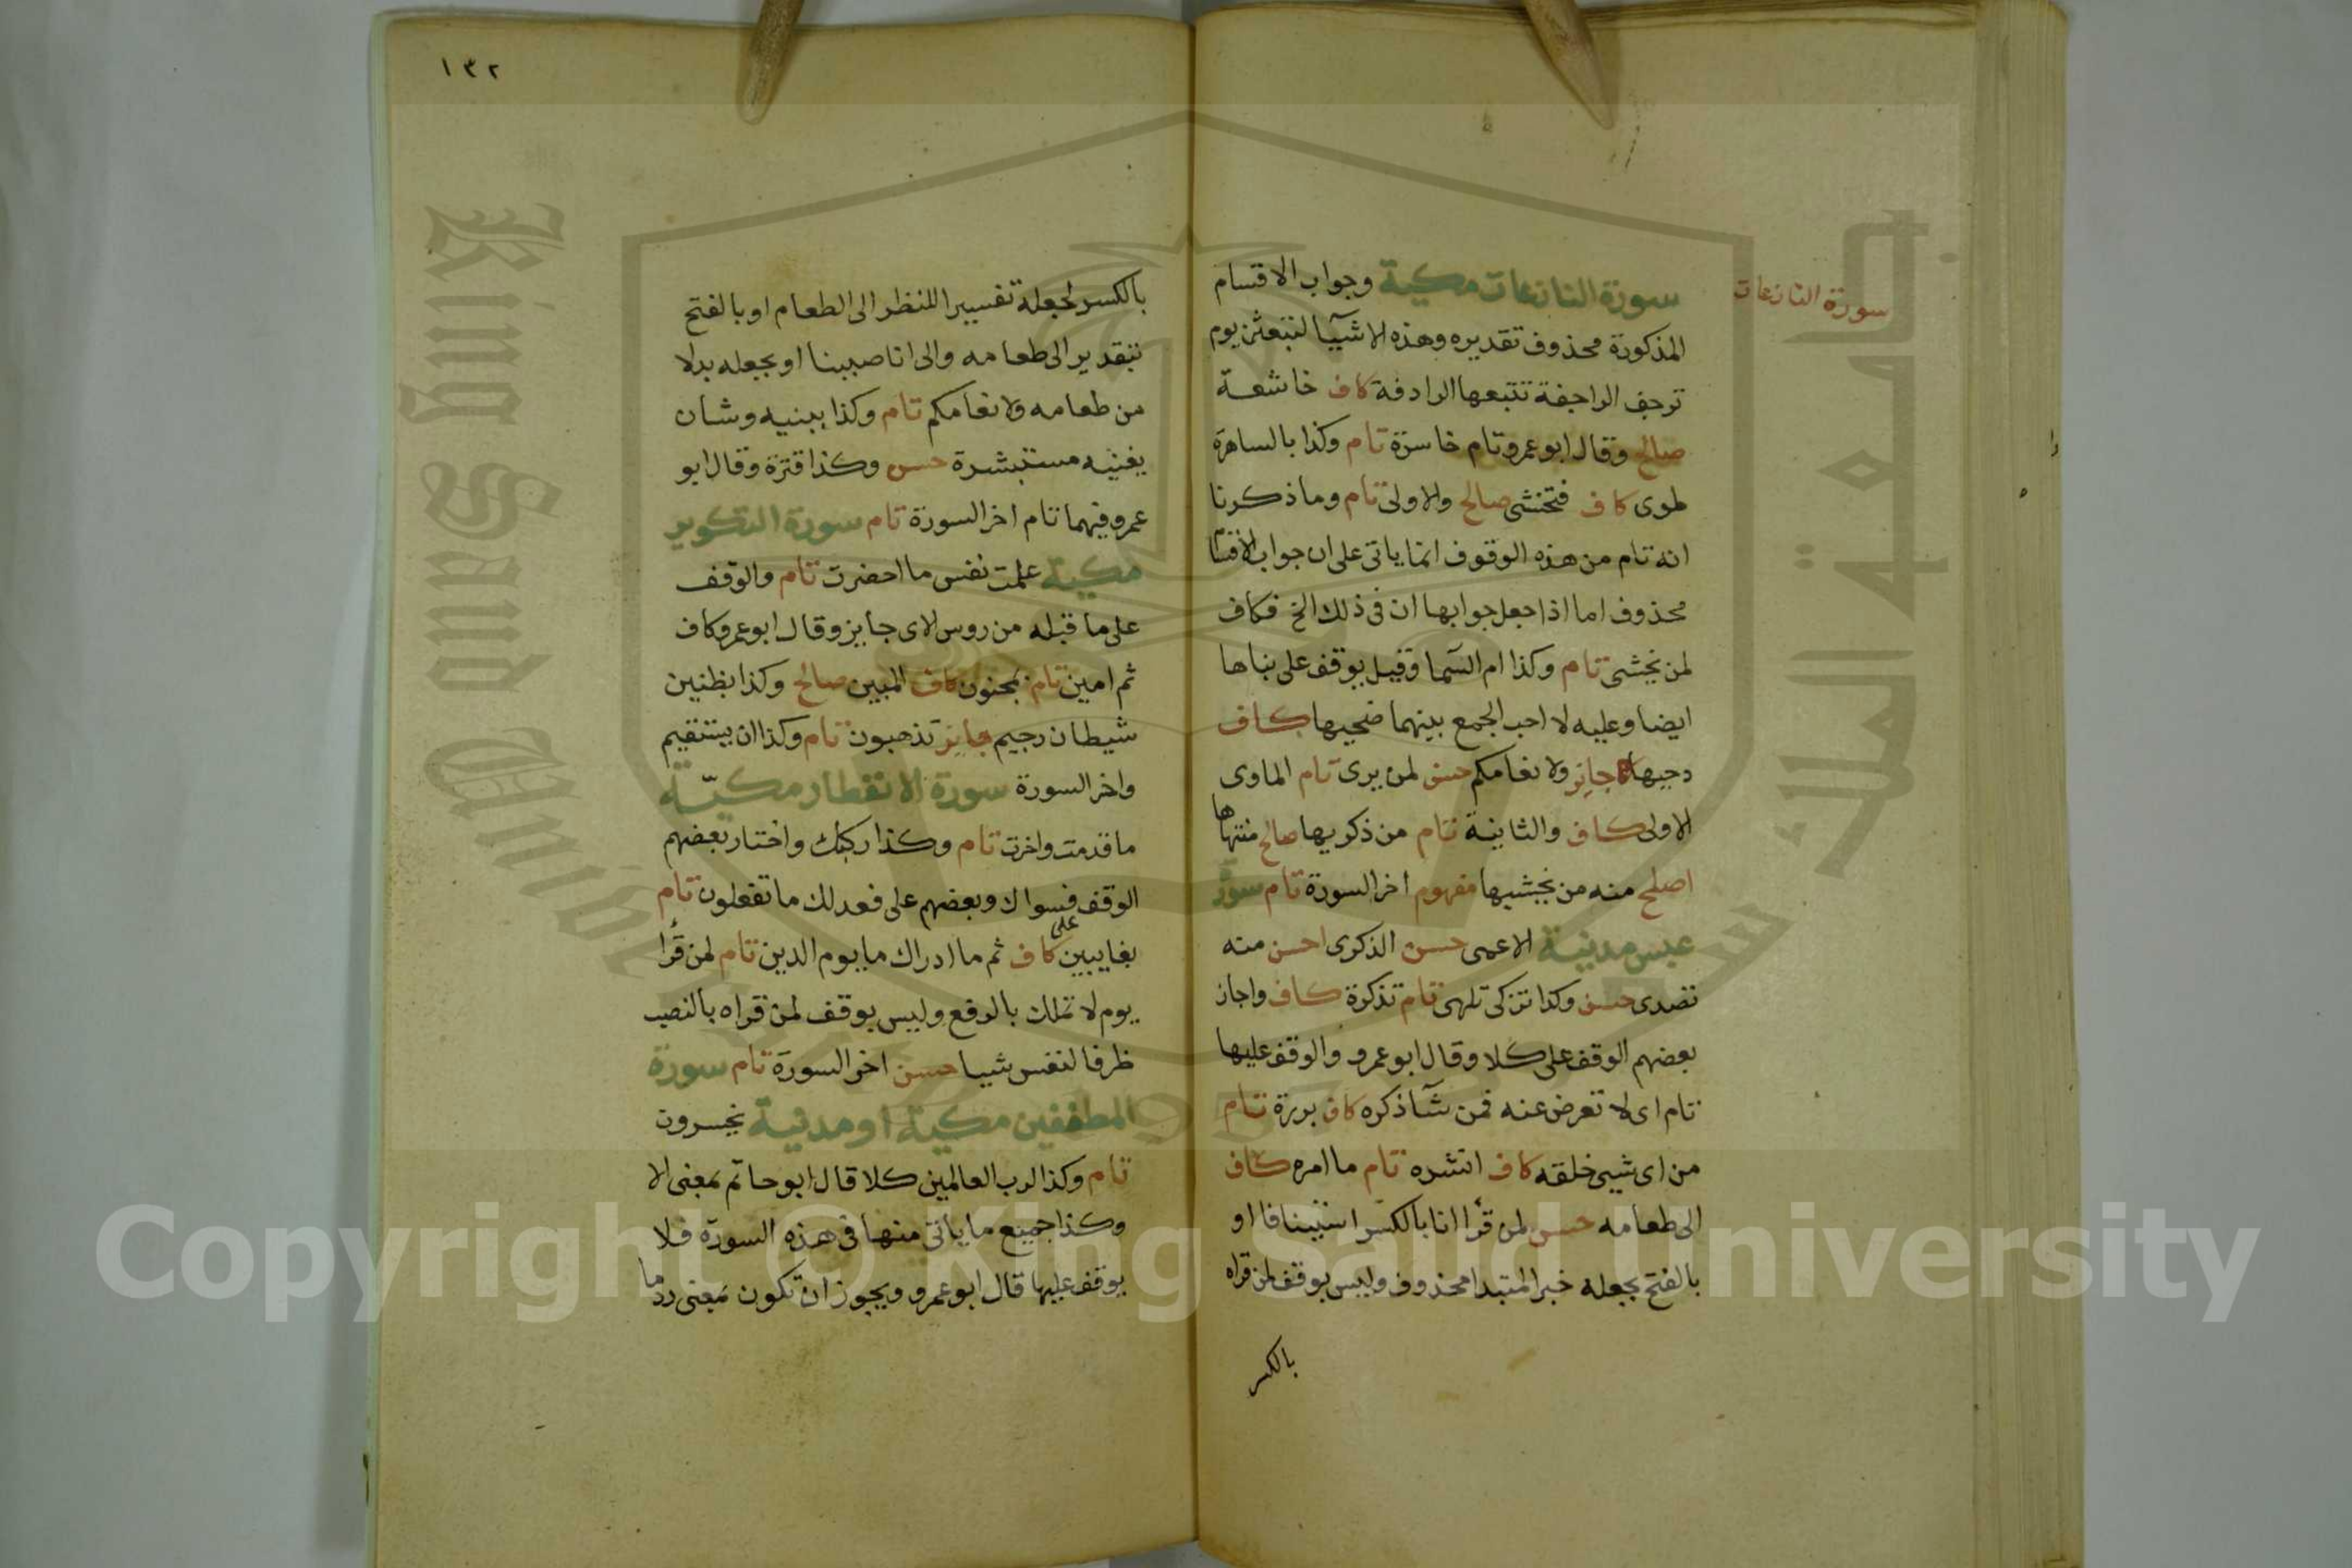 سورة النازعات
سورة النازعات مكية وجواب الاقسام
المذكورة محذوف تقديره وهذه الاشيآ لتبعثن يوم
ترجف الراجفة تتبعها الرادفة كاف خاشعة
صالح وقال ابو عمرو تام خاسرة تام وكذا بالساهرة
طوى كاف فتخشى صالح والاولى تام وما ذكرنا
انه تام من هذه الوقوف انما ياتى على ان جواب الاقسا
محذوف اما اذا جعل جوابها ان فى ذلك الخ فكاف
لمن يخشى تام وكذا ام السما وقيل يوقف على بناها
ايضا وعليه لا احب الجمع بينهما ضحيها كاف
دحيها جايز ولانعامكم حسن لمن يرى تام الماوى
الاولى كاف والثانية تام من ذكريها صالح منتهاها
اصلح منه من يخشيها مفهوم اخر السورة تام سورة
عبس مدنية الاعمى حسن الذكرى احسن منه
تصدى حسن وكذا تزكى تلهى تام تذكرة كاف واجاز
بعضهم الوقف على كلا وقال ابو عمرو والوقف عليها
تام اى لا تعرض عنه فمن شآ ذكره كاف بررة تام
من اى شيى خلقه كاف انشره تام ما امره كاف
الى طعامه حسن لمن قرأ انا بالكسر استينافا او
بالفتح بجعله خبر المبتدا محذوف وليس بوقف لمن قراه
بالكسر
١٣٢
بالكسر لجعله تفسيرا للنظر الى الطعام او بالفتح
بتقدير الى طعامه والى انا صببنا او بجعله بدلا
من طعامه ولانعامكم تام وكذا ببنيه وشان
يغنيه مستبشرة حسن وكذا قترة وقال ابو
عمرو فيهما تام اخر السورة تام سورة التكوير
مكية علمت نفس ما احضرت تام والوقف
على ما قبله من روس الاى جايز وقال ابو عمرو كاف
ثم امين تام بمجنون كاف المبين صالح وكذا بظنين
شيطان رجيم جايز تذهبون تام وكذا ان يستقيم
واخر السورة سورة الانفطار مكيّة
ما قدمت واخرت تام وكذا ركبك واختار بعضهم
الوقف فسواك وبعضهم على فعدلك ما تفعلون تام
على
بغايبين كاف ثم ما ادراك ما يوم الدين تام لمن قرأ
يوم لا تملك بالرفع وليس بوقف لمن قراه بالنصب
ظرفا لنفس شيا حسن اخر السورة تام سورة
المطففين مكية او مدنية يخسرون
تام وكذا لرب العالمين كلا قال ابو حاتم بمعنى الا
وكذا جميع ما ياتى منها فى هذه السورة فلا
يوقف عليها قال ابو عمرو ويجوز ان تكون بمعنى ردا ما
جامعة الملك سعود
King Saud University
Copyright © King Saud University